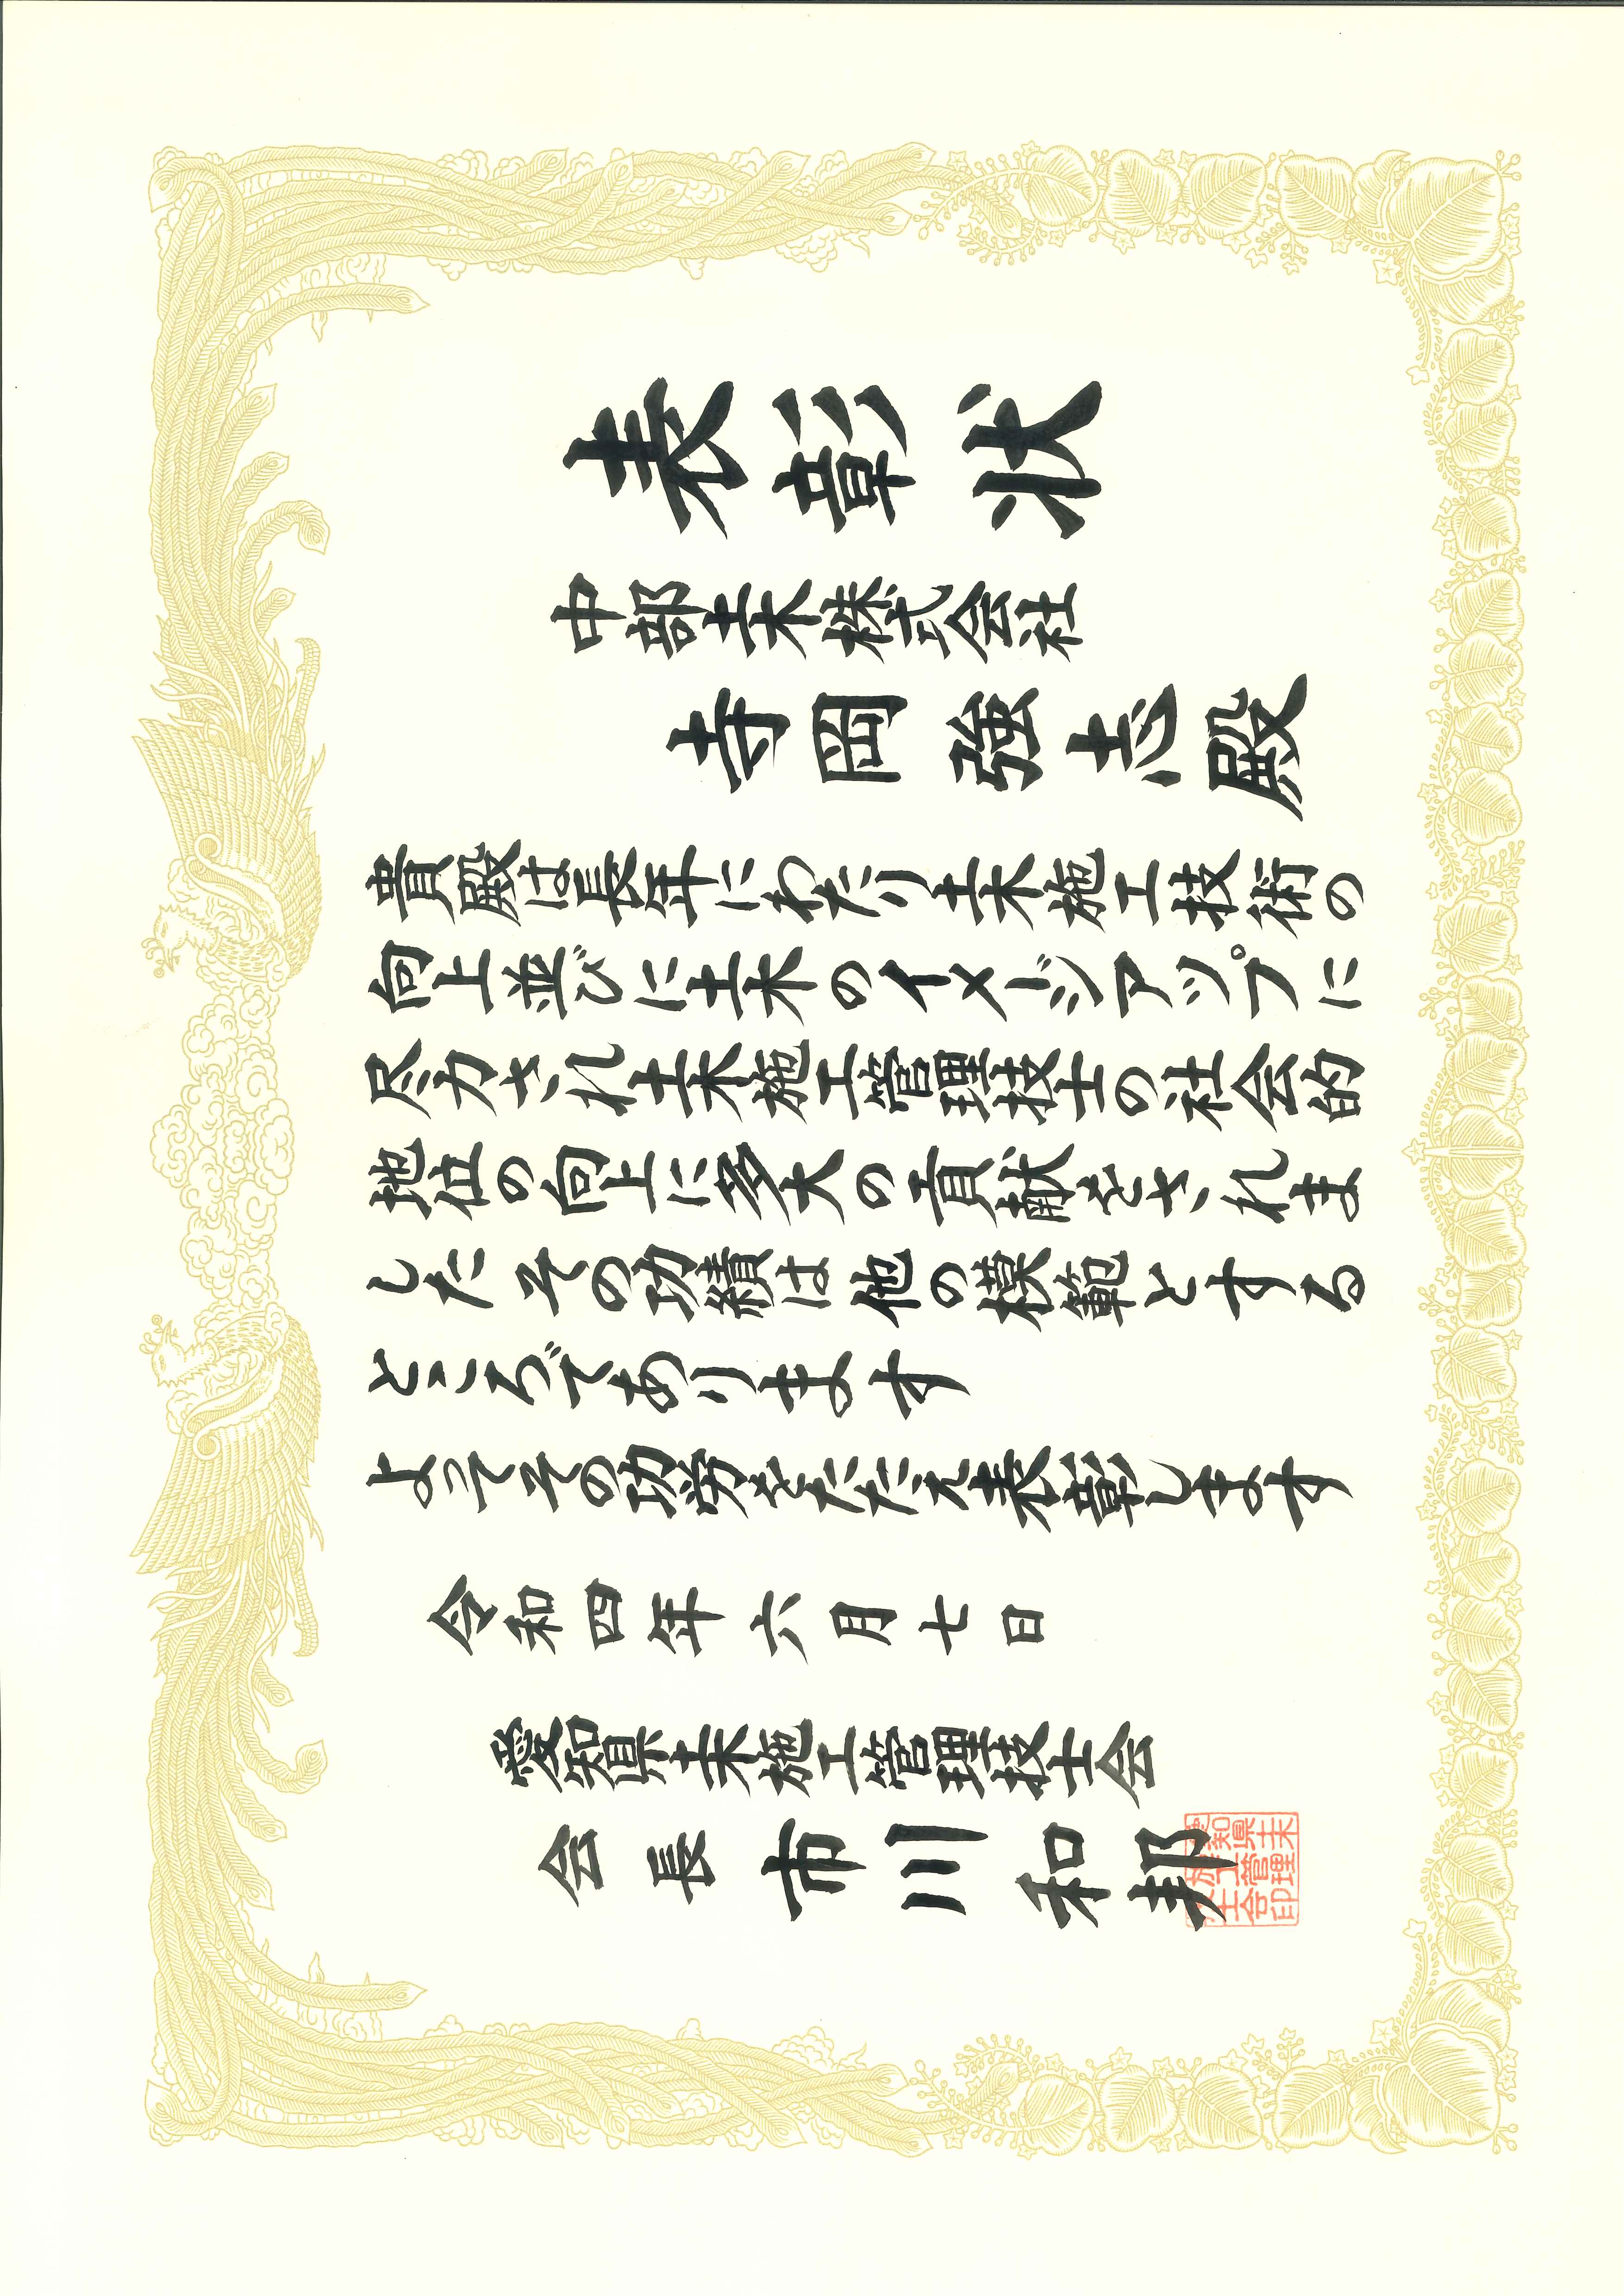 表彰状
中部土木株式会社
寺岡強志殿
貴殿は長年にわたり土木施工技術の
向上並びに土木のイメージアップに
尽力され土木施工管理技士の社会的
地位の向上に多大の貢献をされま
した その功績は他の模範とする
ところであります
よってその功労をたたえ表彰します
令和四年六月七日
愛知県土木施工管理技士会
会長 市川和邦